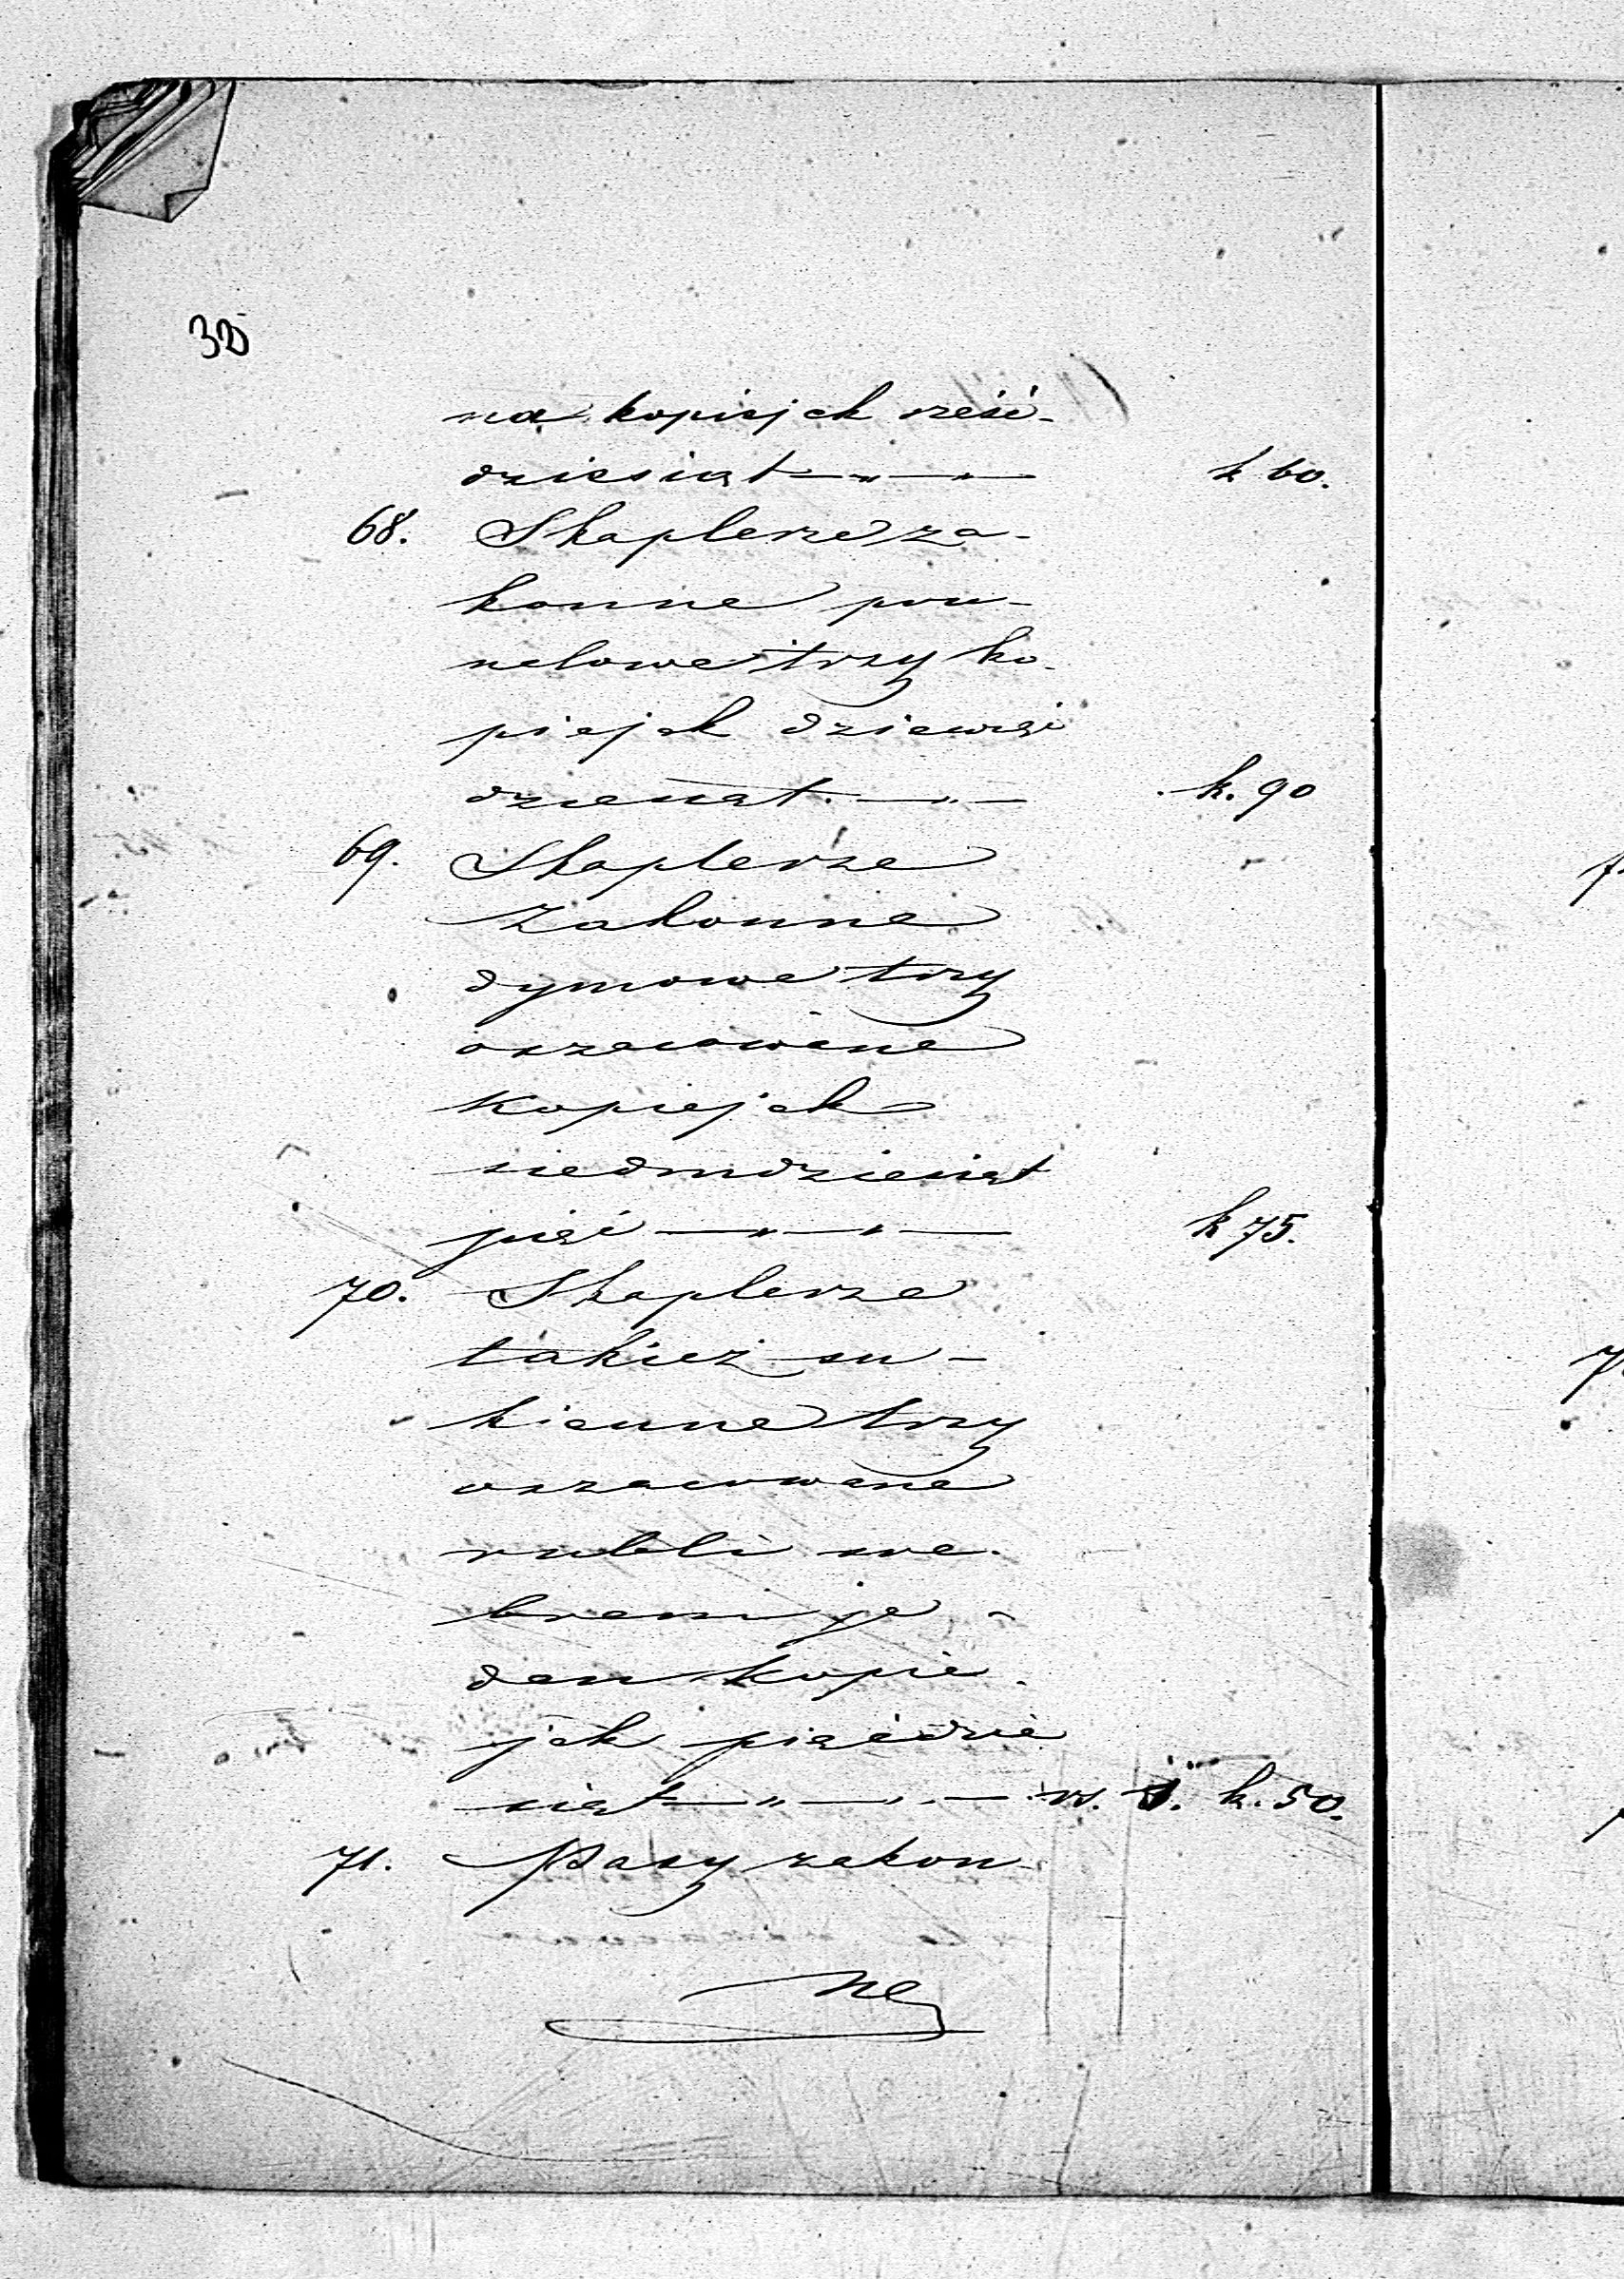 na kopiejek sześć-
dziesiąt k 60.
68. Skaplerze za-
konne pru-
nelowe trzy ko-
piejek dziewięć
dziesiąt. k. 90
69. Skaplerze
zakonne
dymowe trzy
oszacowane
kopiejek
siedmdziesiąt
pięć k 75.
70. Skaplerze
takież su-
kienne trzy
oszacowane
rubli sre-
brem je-
den kopie
jek pięćdzie
siąt rs. 1. k. 50.
71. Pasy zakon-
ne